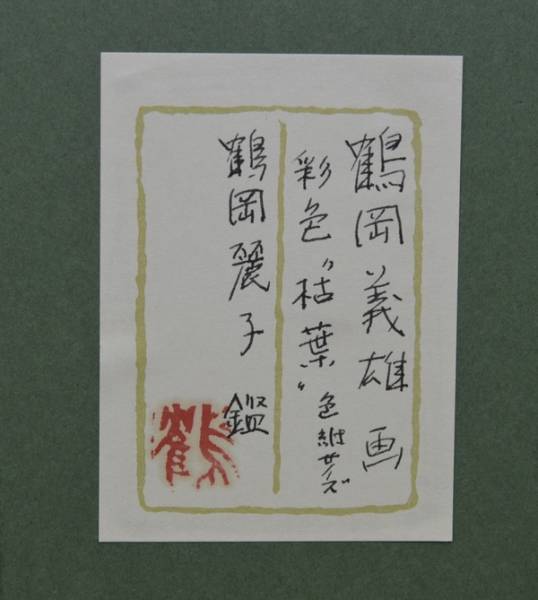 鶴岡義雄画
彩色〝枯葉〟色紙サイズ
鶴岡麗子 鑑
鶴